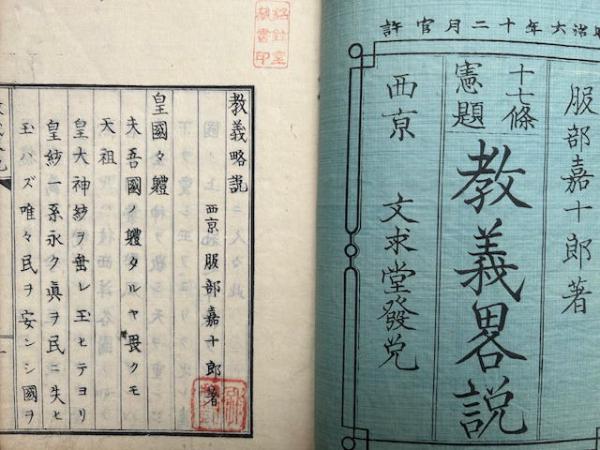 明治六年十二月官許
服部嘉十郎著
十七條
憲題
教義畧說
西京 文求堂發兌
教義略說
西京 服部嘉十郎著
皇國々軆
夫吾國ノ軆タルヤ畏クモ
天祖
皇大神統ヲ垂レ玉ヒテヨリ
皇統一系永ク真ヲ民ニ失ヒ
玉ハズ唯々民ヲ安ンシ國ヲ
藏書印